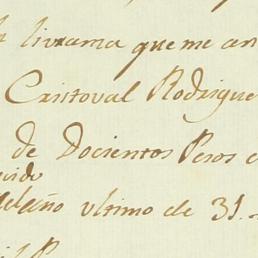 livrama que me an
Cristoval Rodrigue
de Docientos Pesos
del año ultimo de 31.